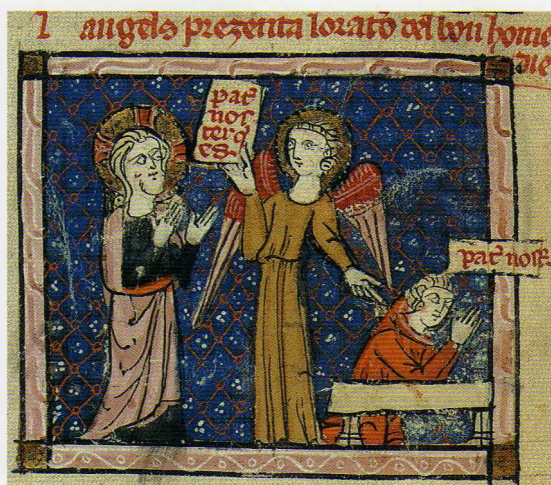 angels prezenta loratō del bon home
que
pat̄
nos
ter q
es
pat̄ nostr̄